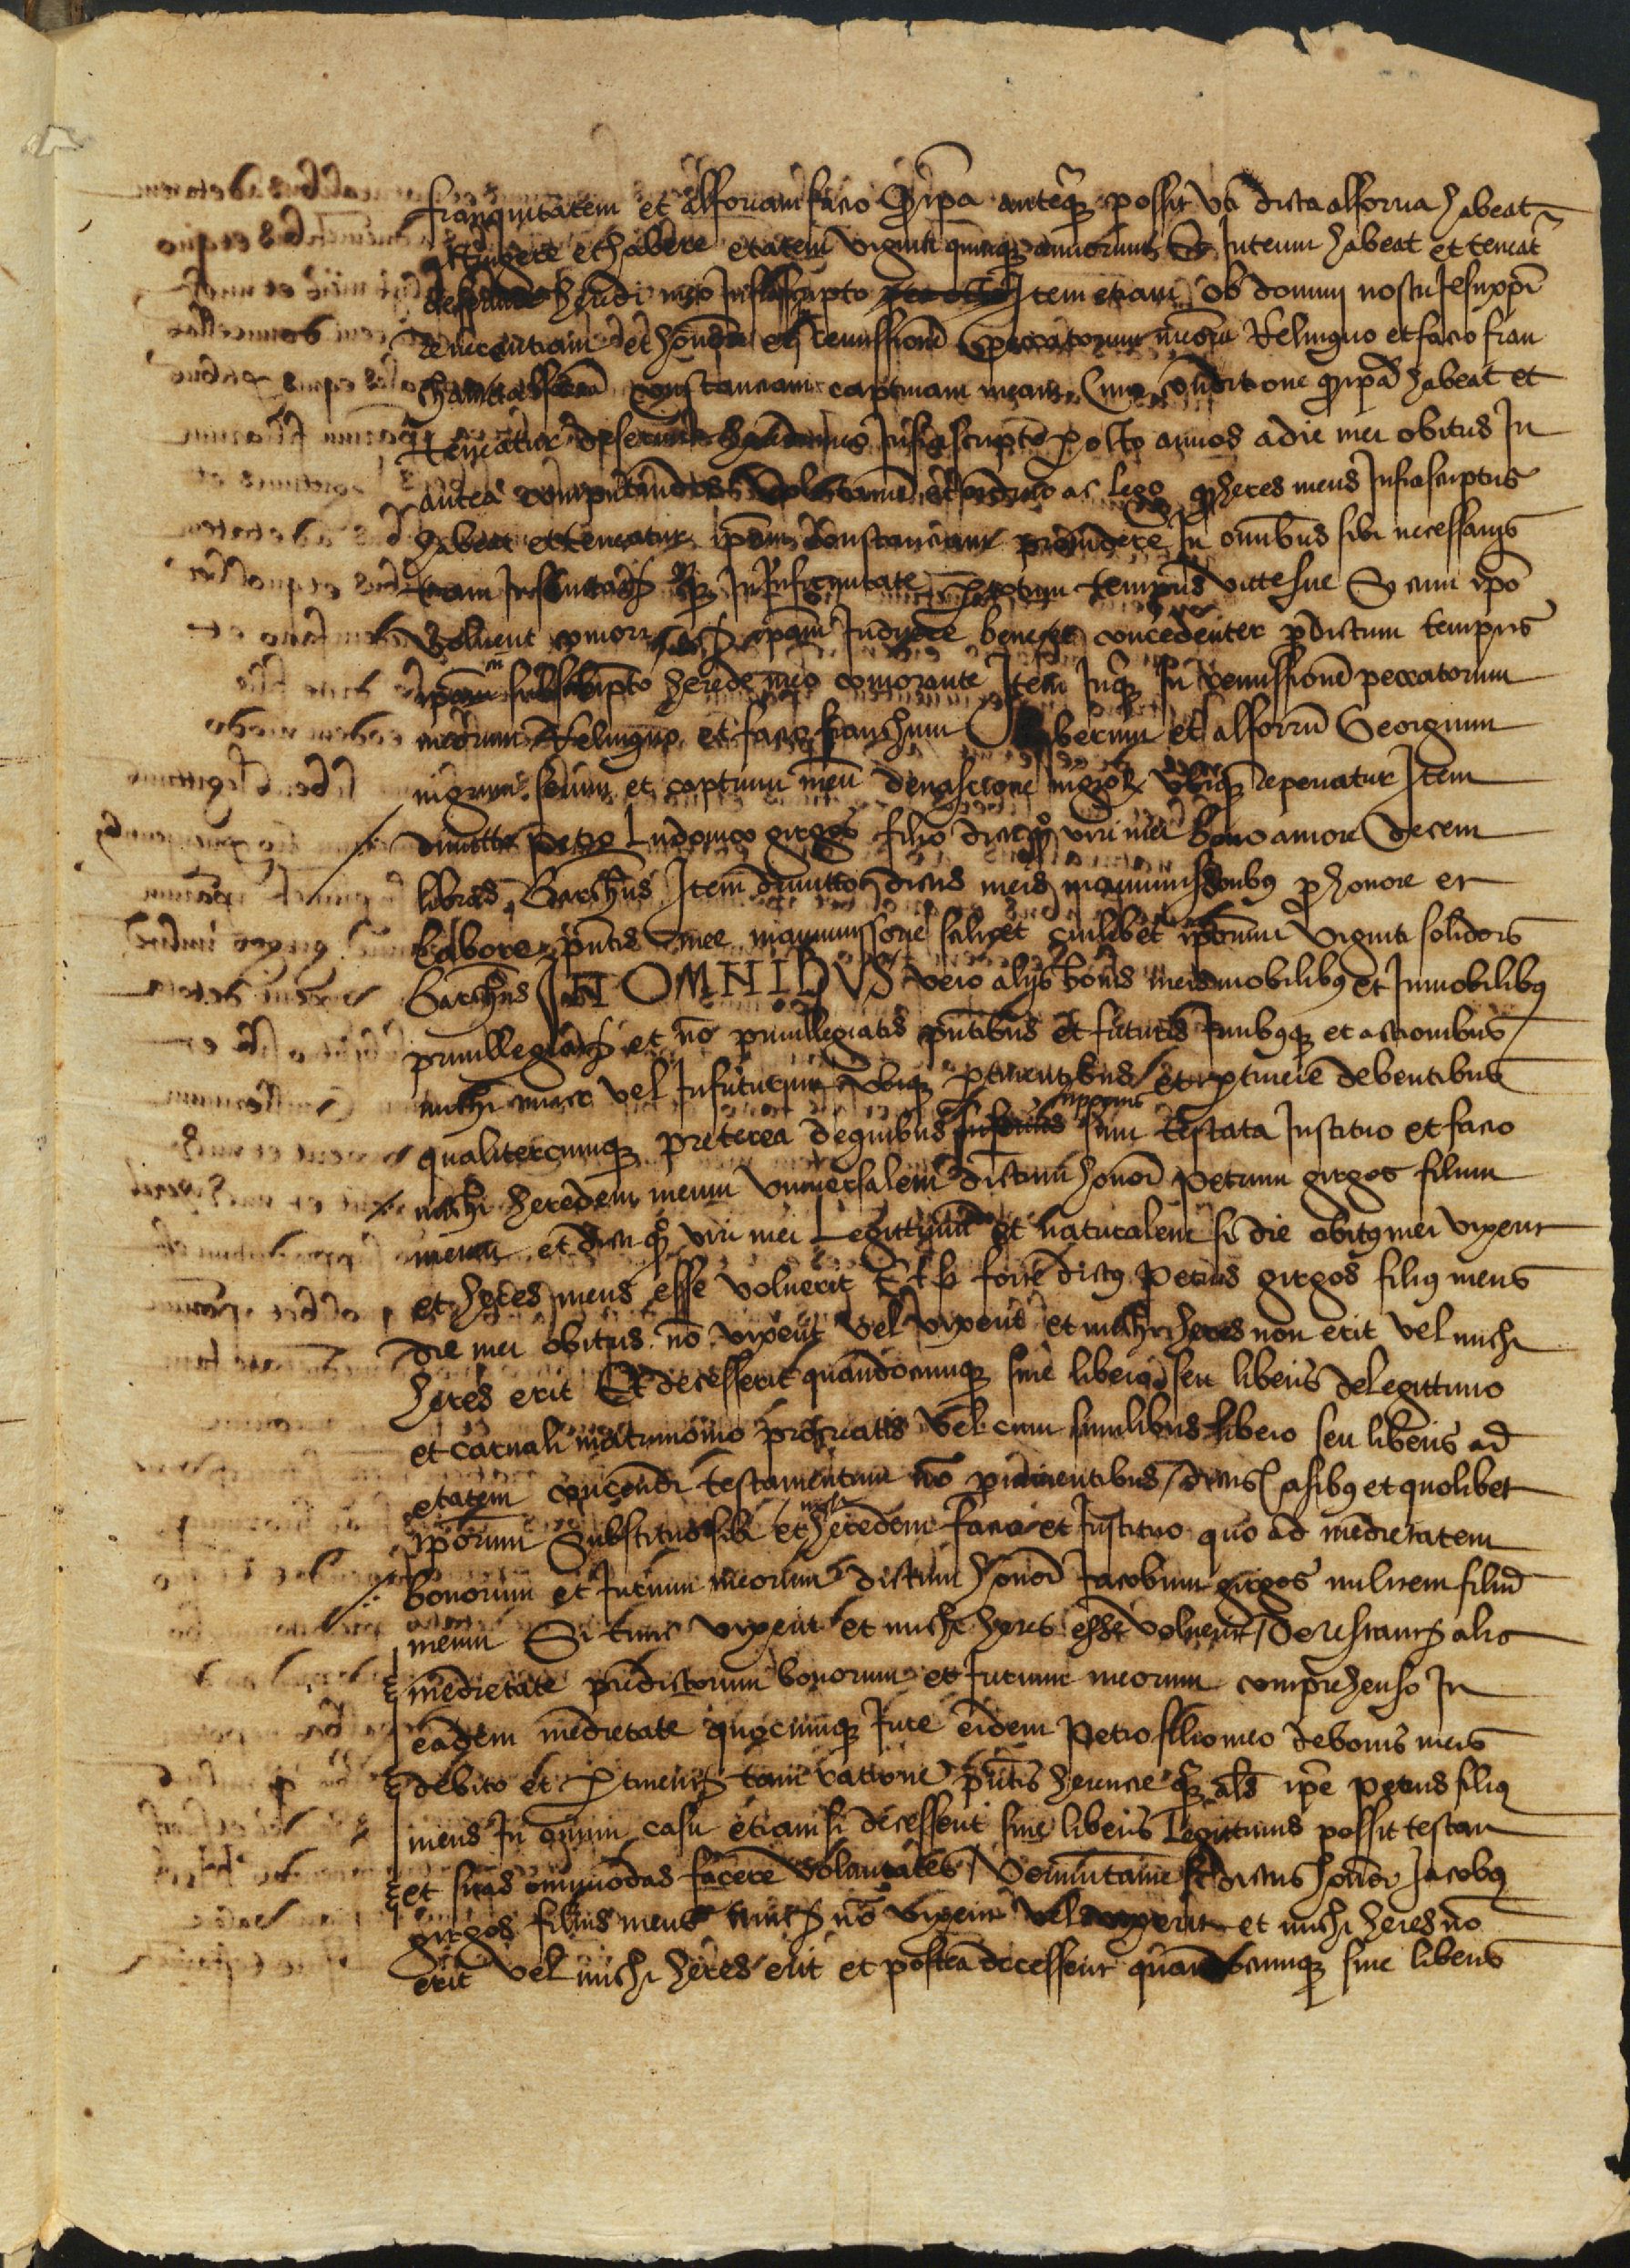 franquitatem et alforriam facio q ipa anteq possit vti dicta alforria habeat
attingere et habere etatem viginti quinq annorum Et Interim habeat et teneat
deservire heredi meo Infrascripto Item etiam ob domini nostri Jesu xpi
reverentiam et honore et remissione peccatorum meoru Relinquo et facio fran
cham et alforra Constanciam captivam meam Cum conditione q ipa habeat et
teneatur deservire heredi meo Infrascripto p octo annos a die mei obitus In
antea computandos Volo tamen et ordino ac lego q heres meus Infrascriptus
habeat et teneatur ipam Constanciam providere In omibus sibi necessariis
tam In sanitate q In Infirmitate p totum tempus vite sue Si cum ipo
voluerit comorari et ipam Induere bene et concedenter p dictum tempus
ipam Infrascripto herede meo comorante Item Inq In remissione peccatorum
meorum Relinquo et facio franchum Liberum et alforru Georgium
nigrum servu et captivu meu de nascione nigror ubiq reperiatur Item
dimitto petro Ludovico girgos filio dicti q viri mei bono amore decem
libras Barchns Item dimitto dictis meis manumissoribus p honore et
labore pntis mee manumissorie scilicet cuilibet ipsorum viginti solidos
Barchns IN OMNIBUS vero aliis bonis meis mobilibus et Inmobilibus
privillegiatis et no privillegiatis pntibus et futuris Juribusq et actionibus
michi nunc vel Infuturum ubiq ptinentibus et ptinere debentibus
qualitercumq preterea de quibus superius sum testata Instituo et facio
michi heredem meum universalem dictum honor petrum girgos filium
meum et dicti q viri mei Legitimu et naturalem si die obitus mei vixerit
et heres meus esse voluerit Et si forte dictus petrus girgos filius meus
die mei obitus no vixerit vel vixerit et michi heres non erit vel michi
heres erit Et decesserit quandocumq sine liberis seu liberis de legittimo
et carnali matrimonio procreatis vel cum similibus libero seu liberis ad
etatem conficendi testamentum no pvenientibus dictis casibus et quolibet
ipsorum Substituo sibi et michi heredem facio et Instituo quo ad medietatem
bonorum et Jurium meorum dictum honor Jacobum girgos militem filiu
meum Si tunc vixerit et michi heres esse voluerit De restanti alia
medietate predictorum bonorum et Jurium meorum comprehenso In
eadem medietate quocumq Jure eidem Petro filio meo de bonis meis
debito et ptinenti tam ratione pntis herencie q als ipe petrus filius
meus In omni casu etiam si decesserit sine liberis Legittimis possit testari
et suas omnimodas facere voluntates Verumtamen si dictus honor Jacobus
girgos filius meus tunc no vixerit vel vixerit et michi heres no
erit vel michi heres erit et postea decesserit quandocumq sine liberis